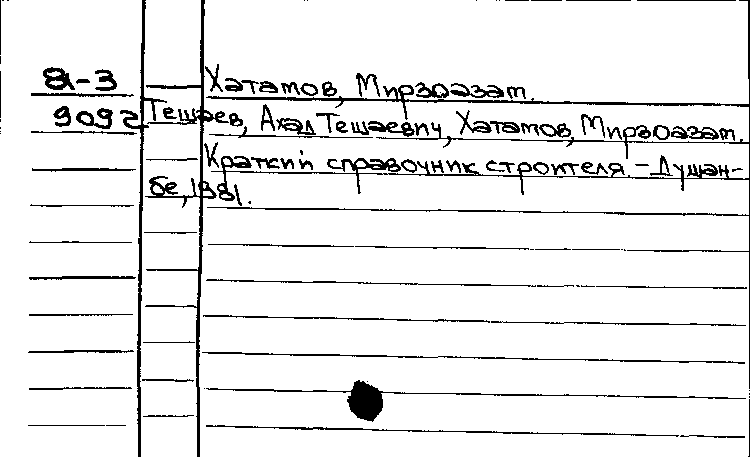 81-3 Хатамов, Мирзоазам.
9092 Тешаев, Ахад Тешаевич, Хатамов, Мирзоазам.
Краткий справочник строителя. - Душан-
бе, 1981.